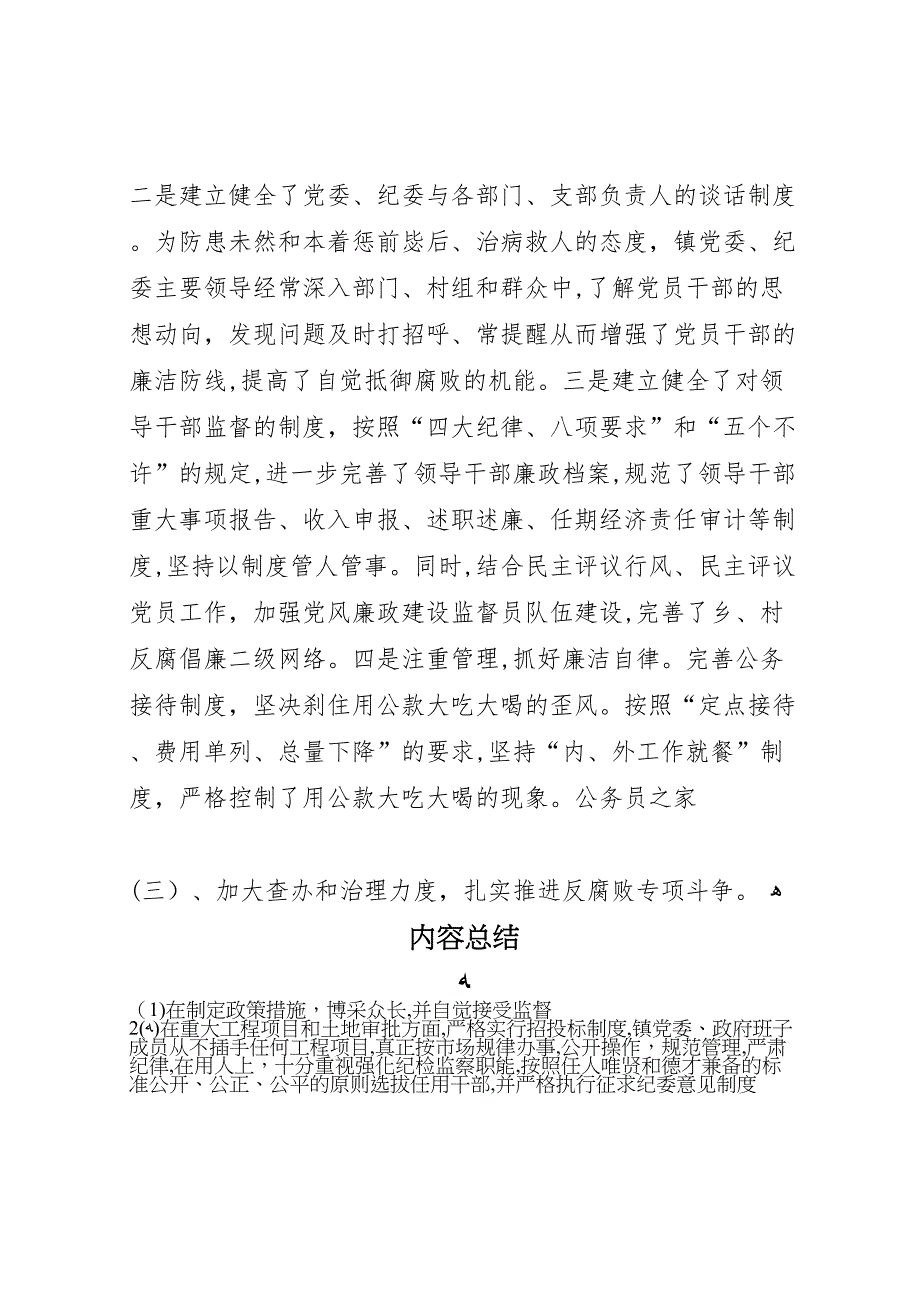 二是建立健全了党委、纪委与各部门、支部负责人的谈话制度
。为防患未然和本着惩前毖后、治病救人的态度，镇党委、纪
委主要领导经常深入部门、村组和群众中,了解党员干部的思
想动向，发现问题及时打招呼、常提醒从而增强了党员干部的
廉洁防线,提高了自觉抵御腐败的机能。三是建立健全了对领
导干部监督的制度，按照“四大纪律、八项要求”和“五个不
许”的规定,进一步完善了领导干部廉政档案,规范了领导干部
重大事项报告、收入申报、述职述廉、任期经济责任审计等制
度,坚持以制度管人管事。同时,结合民主评议行风、民主评议
党员工作，加强党风廉政建设监督员队伍建设,完善了乡、村
反腐倡廉二级网络。四是注重管理,抓好廉洁自律。完善公务
接待制度，坚决刹住用公款大吃大喝的歪风。按照“定点接待
、费用单列、总量下降”的要求,坚持“内、外工作就餐”制
度，严格控制了用公款大吃大喝的现象。公务员之家
(三）、加大查办和治理力度，扎实推进反腐败专项斗争。ﻫ
内容总结
ﻪ
（1)在制定政策措施，博采众长,并自觉接受监督
2(ﻪ)在重大工程项目和土地审批方面,严格实行招投标制度,镇党委、政府班子
成员从不插手任何工程项目,真正按市场规律办事,公开操作，规范管理,严肃
纪律,在用人上，十分重视强化纪检监察职能,按照任人唯贤和德才兼备的标
准公开、公正、公平的原则选拔任用干部,并严格执行征求纪委意见制度